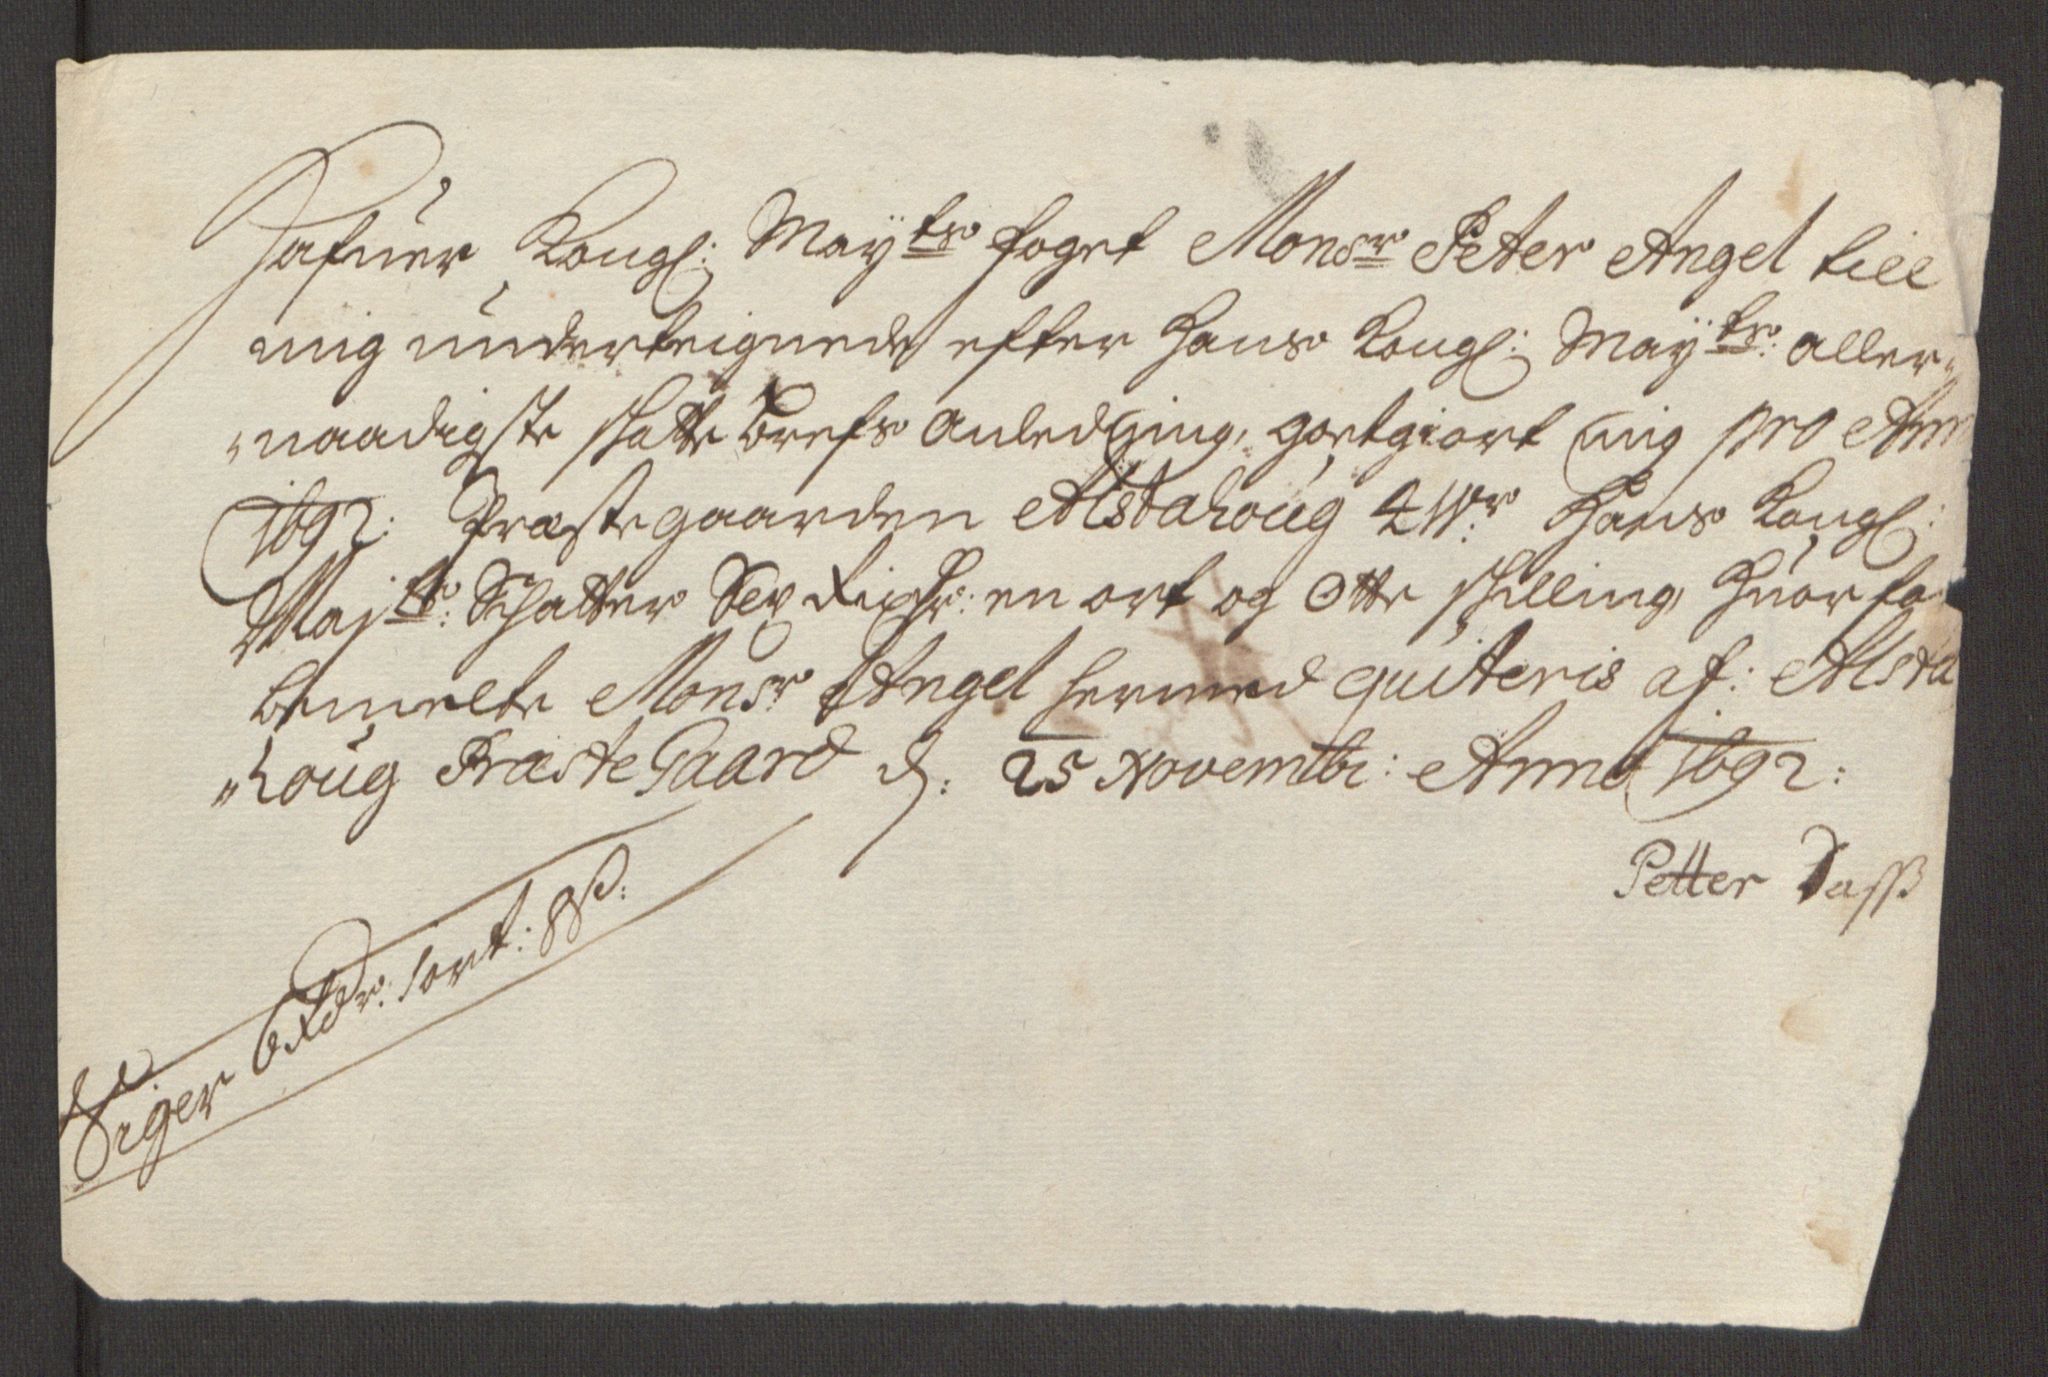 Hafuer Kongl: Maÿts foget Monsr Peter Angel till
mig underteignede efter Hans Kongl: Maÿts: aller„
„naadigste skatte brefs anledning, goetgiort mig pro Ann
1692: Præstegaarden Alstahoug Hans Kongl:
Maj ts: Schatter Sex Rixdr: en ort og Otte skilling, huor fo
bemelte Monsr Angel hermed quiteris af: Alsta
„houg PræsteGaard d: 25 Novembr: Anno 1692:
Petter Dass
Siger 6 Rdr: 1 ort: 8 s: